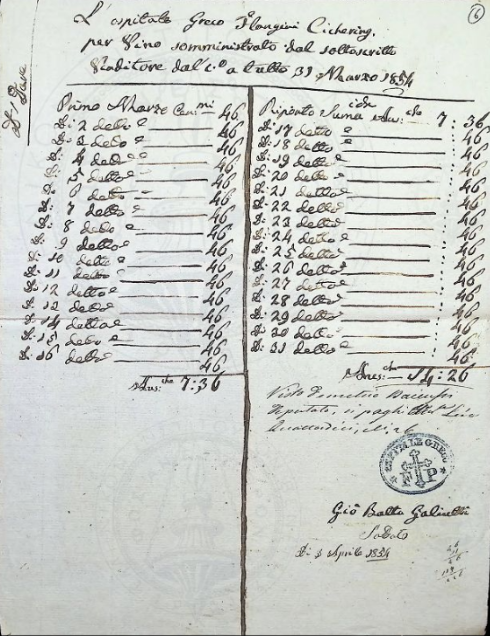 6
L'ospitale Greco Flangini
per Vino somministrato dal sottoscritto
dal p.o a tutto 31 Marzo 1854
Primo Marzo Cen.mi 46
Di: 2 detto 46
Di: 3 detto 46
Di: 4 detto 46
Di: 5 detto 46
Di: 6 detto 46
Di: 7 detto 46
Di: 8 detto 46
Di: 9 detto 46
Di: 10 detto 46
Di: 11 detto 46
Di: 12 detto 46
Di: 13 detto 46
Di: 14 detto 46
Di: 15 detto 46
Di: 16 detto 46
Aus:che 7:36
Riporto Suma Aus:che 7:36
Di: 17 detto : 46
Di: 18 detto : 46
Di: 19 detto : 46
Di: 20 detto : 46
Di: 21 detto : 46
Di: 22 detto : 46
Di: 23 detto : 46
Di: 24 detto : 46
Di: 25 detto : 46
Di: 26 detto : 46
Di: 27 detto : 46
Di: 28 detto : 46
Di: 29 detto : 46
Di: 30 detto : 46
Di: 31 detto : 46
Aus:che 14:26
Visto Demetrio
Deputato, si paghi Lire
OSPITALE GRECO
N P
Gio Batta
Saldato
Di 3 Aprile 1854